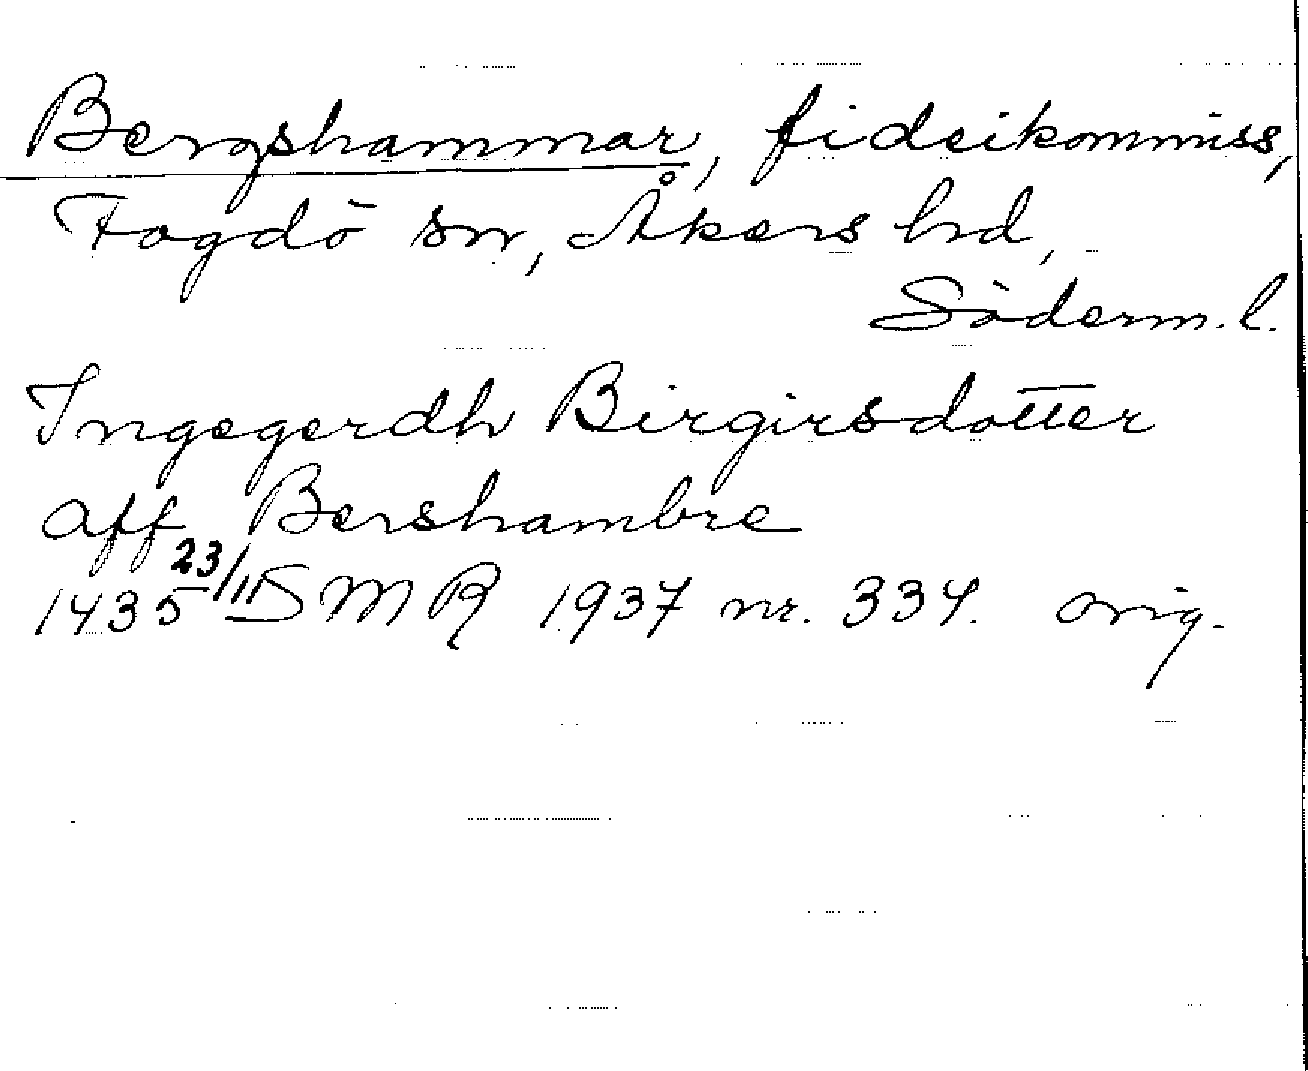 Bergshammar, fideikommiss,
Fogdö sn, Åkers hd,
Söderm. l.
Ingegerdh Birgirsdotter
aff Bershambre
1435 23/11 SMR 1937 nr. 334. orig.